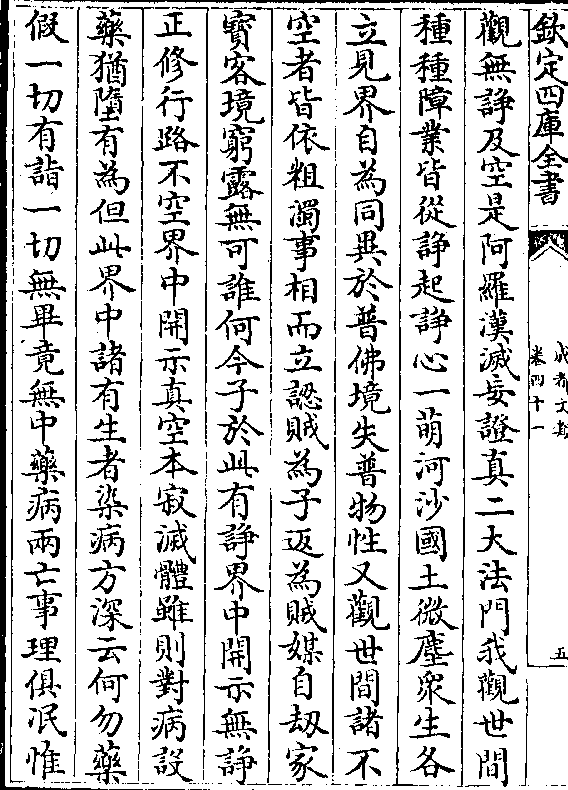 欽定四庫全書
成都文類
卷四十一
五
觀無諍及空是阿羅漢滅妄證真二大法門我觀世間
種種障業皆從諍起諍心一萌河沙國土微塵衆生各
立見界自為同異於普佛境失普物性又觀世間諸不
空者皆依粗濁事相而立認賊為子返為賊媒自刼家
寳客境窮露無可誰何今子於此有諍界中開示無諍
正修行路不空界中開示真空本寂滅體雖則對病設
藥猶墮有為但此界中諸有生者染病方深云何勿藥
假一切有詣一切無畢竟無中藥病兩亡事理俱泯惟